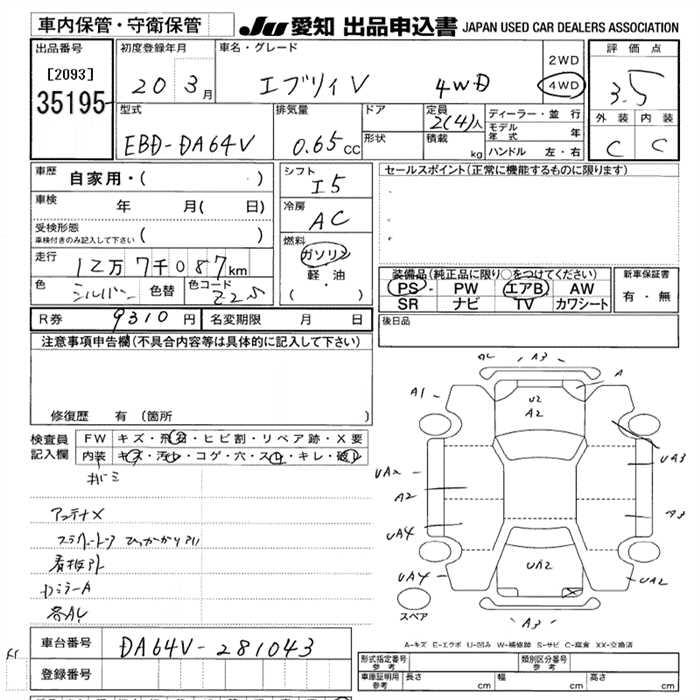 車内保管・守衛保管
JU 愛知 出品申込書 JAPAN USED CAR DEALERS ASSOCIATION
出品番号
[2093]
35195
初度登録年月
20 3月
車名・グレード
エブリィV 4WD
2WD
4WD
評価点
3.5
外装 内装
C C
型式
EBD-DA64V
排気量
0.65cc
ドア
形状
定員
2(4)人
積載
kg
ディーラー・並行
モデル年式 年
ハンドル 左・右
車歴
自家用・( )
車検
年 月( 日)
受検形態
車検付きのみ記入して下さい ( )
走行
12万7千087km
色
シルバー 色替
色コード
Z2S
シフト
I5
冷房
AC
燃料
ガソリン
軽・油
( ・ )
セールスポイント(正常に機能するものに限ります)
装備品(純正品に限り○をつけてください)
PS・PW エアB AW
SR ナビ TV カワシート
新車保証書
有・無
R券 9310円 名変期限 月 日
後日品
注意事項申告欄(不具合内容等は具体的に記入して下さい)
修復歴 有(箇所 )
検査員記入欄
FW キズ・飛石・ヒビ割・リペア跡・X要
内装 キズ・汚レ・コゲ・穴・スレ・キレ・破レ
キバミ
アンテナX
看板外
カミラーA
各AU
A3
A
A1
U2
A2
UA3
A2
A3
UA4
UA2
UA4
UA2
スペア
A3
A-キズ E-エクボ U-凹み W-補修跡 S-サビ C-腐食 XX-交換済
車台番号
DA64V-281043
登録番号
形式指定番号 参考
類別区分番号 参考
車庫証明用 参考 長さ cm 幅 cm 高さ cm